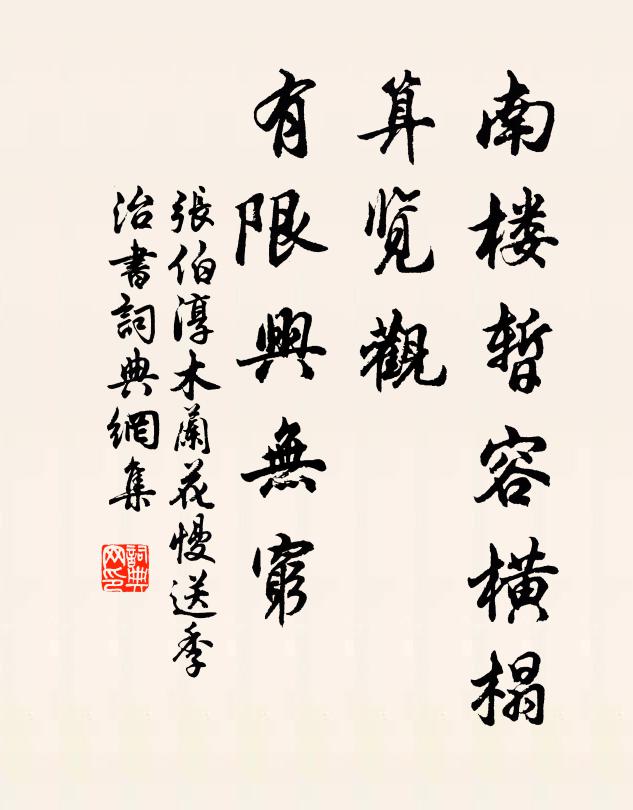 南楼暫容横榻
算览觀
有限興無窮
張伯淳木蘭花慢送季
治書詞典網集
詞典网印